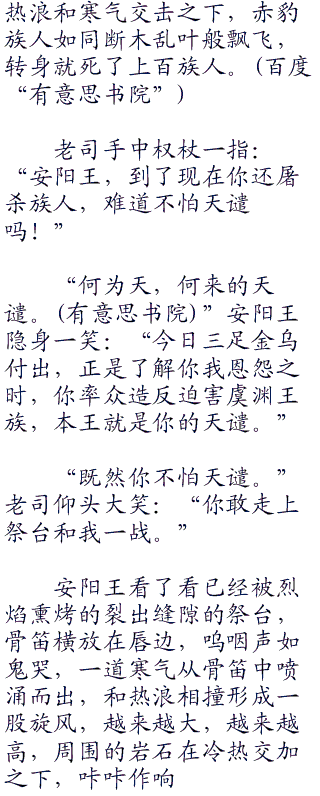 热浪和寒气交击之下，赤豹
族人如同断木乱叶般飘飞，
转身就死了上百族人。(百度
“有意思书院”)
老司手中权杖一指：
“安阳王，到了现在你还屠
杀族人，难道不怕天谴
吗！”
“何为天，何来的天
谴。(有意思书院)”安阳王
隐身一笑：“今日三足金乌
付出，正是了解你我恩怨之
时，你率众造反迫害虞渊王
族，本王就是你的天谴。”
“既然你不怕天谴。”
老司仰头大笑：“你敢走上
祭台和我一战。”
安阳王看了看已经被烈
焰熏烤的裂出缝隙的祭台，
骨笛横放在唇边，呜咽声如
鬼哭，一道寒气从骨笛中喷
涌而出，和热浪相撞形成一
股旋风，越来越大，越来越
高，周围的岩石在冷热交加
之下，咔咔作响